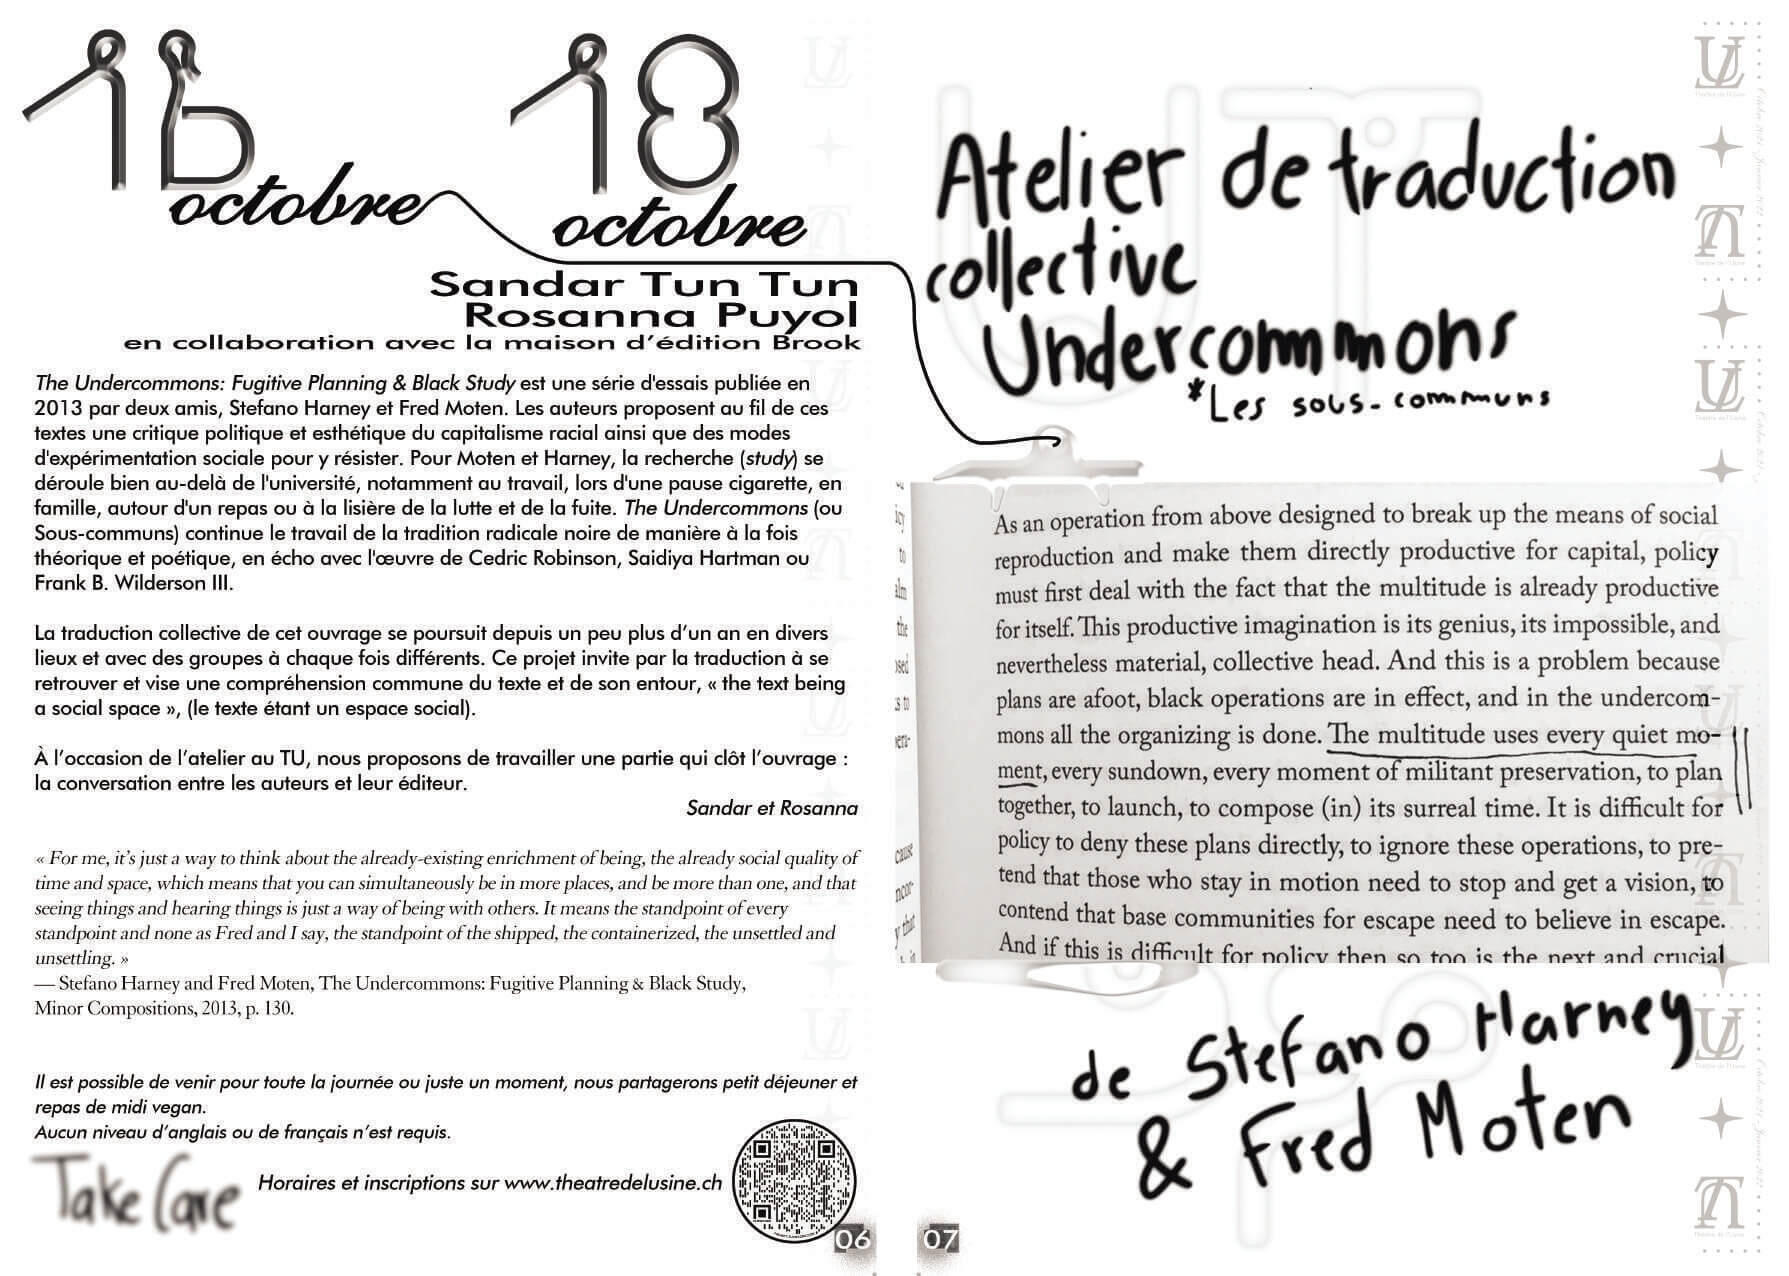 16 octobre
18 octobre
Sandar Tun Tun
Rosanna Puyol
en collaboration avec la maison d’édition Brook
The Undercommons: Fugitive Planning & Black Study est une série d'essais publiée en
2013 par deux amis, Stefano Harney et Fred Moten. Les auteurs proposent au fil de ces
textes une critique politique et esthétique du capitalisme racial ainsi que des modes
d'expérimentation sociale pour y résister. Pour Moten et Harney, la recherche (study) se
déroule bien au-delà de l'université, notamment au travail, lors d'une pause cigarette, en
famille, autour d'un repas ou à la lisière de la lutte et de la fuite. The Undercommons (ou
Sous-communs) continue le travail de la tradition radicale noire de manière à la fois
théorique et poétique, en écho avec l'œuvre de Cedric Robinson, Saidiya Hartman ou
Frank B. Wilderson III.
La traduction collective de cet ouvrage se poursuit depuis un peu plus d’un an en divers
lieux et avec des groupes à chaque fois différents. Ce projet invite par la traduction à se
retrouver et vise une compréhension commune du texte et de son entour, « the text being
a social space », (le texte étant un espace social).
À l’occasion de l’atelier au TU, nous proposons de travailler une partie qui clôt l’ouvrage :
la conversation entre les auteurs et leur éditeur.
Sandar et Rosanna
« For me, it’s just a way to think about the already-existing enrichment of being, the already social quality of
time and space, which means that you can simultaneously be in more places, and be more than one, and that
seeing things and hearing things is just a way of being with others. It means the standpoint of every
standpoint and none as Fred and I say, the standpoint of the shipped, the containerized, the unsettled and
unsettling. »
— Stefano Harney and Fred Moten, The Undercommons: Fugitive Planning & Black Study,
Minor Compositions, 2013, p. 130.
Il est possible de venir pour toute la journée ou juste un moment, nous partagerons petit déjeuner et
repas de midi vegan.
Aucun niveau d’anglais ou de français n’est requis.
Take Care
Horaires et inscriptions sur www.theatredelusine.ch
06
Atelier de traduction
collective
Undercommons
*Les sous-communs
As an operation from above designed to break up the means of social
reproduction and make them directly productive for capital, policy
must first deal with the fact that the multitude is already productive
for itself. This productive imagination is its genius, its impossible, and
nevertheless material, collective head. And this is a problem because
plans are afoot, black operations are in effect, and in the undercom-
mons all the organizing is done. The multitude uses every quiet mo-
ment, every sundown, every moment of militant preservation, to plan
together, to launch, to compose (in) its surreal time. It is difficult for
policy to deny these plans directly, to ignore these operations, to pre-
tend that those who stay in motion need to stop and get a vision, to
contend that base communities for escape need to believe in escape.
And if this is difficult for policy then so too is the next and crucial
de Stefano Harney
& Fred Moten
07